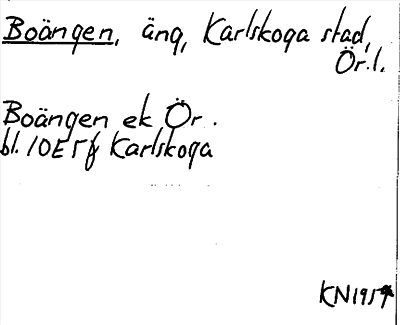 Boängen, äng, Karlskoga stad,
Ör. l.
Boängen ek Ör.
bl. 10E5f Karlskoga
KN